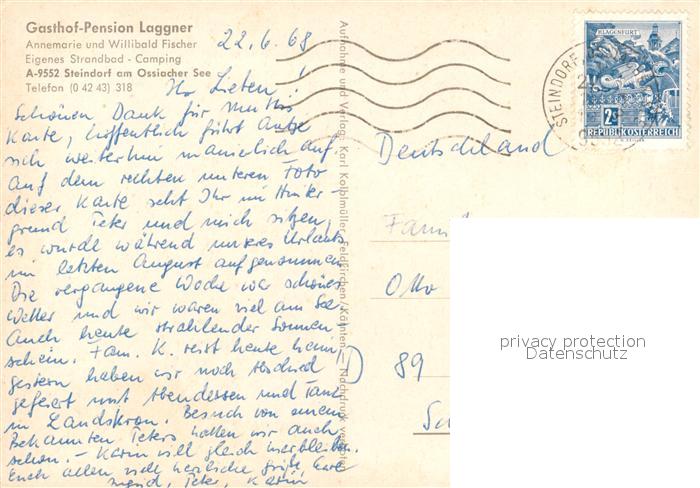 Gasthof-Pension Laggner
Annemarie und Willibald Fischer
Eigenes Strandbad - Camping
A-9552 Steindorf am Ossiacher See
Telefon (0 42 43) 318
22.6.68
Ihr Lieben!
Schönen Dank für Muttis
Karte, hoffentlich führt Antje
sich weiterhin manierlich auf.
Auf dem rechten unteren Foto
dieser Karte seht Ihr im Hinter-
grund Peter und mich sitzen,
es wurde während unseres Urlaubs
im letzten August aufgenommen.
Die vergangene Woche war schönes
Wetter und wir waren viel am See.
Auch heute strahlender Sonnen-
schein. Fam. K. reist heute heim,
gestern haben wir noch Abschied
gefeiert mit Abendessen und Tanz
in Landskron. Besuch von einem
Bekannten Peters hatten wir auch
schon. - Karin will gleich hierbleiben.
Euch allen viele herzliche Grüße, Eure
Ingrid, Peter, Karin
Aufnahme und Verlag: Karl Kolblmüller, Feldkirchen/Kärnten. Nachdruck verboten
KLAGENFURT
2S
REPUBLIK ÖSTERREICH
STEINDORF
Deutschland
Fami
Otto
D 89
Sc
privacy protection
Datenschutz